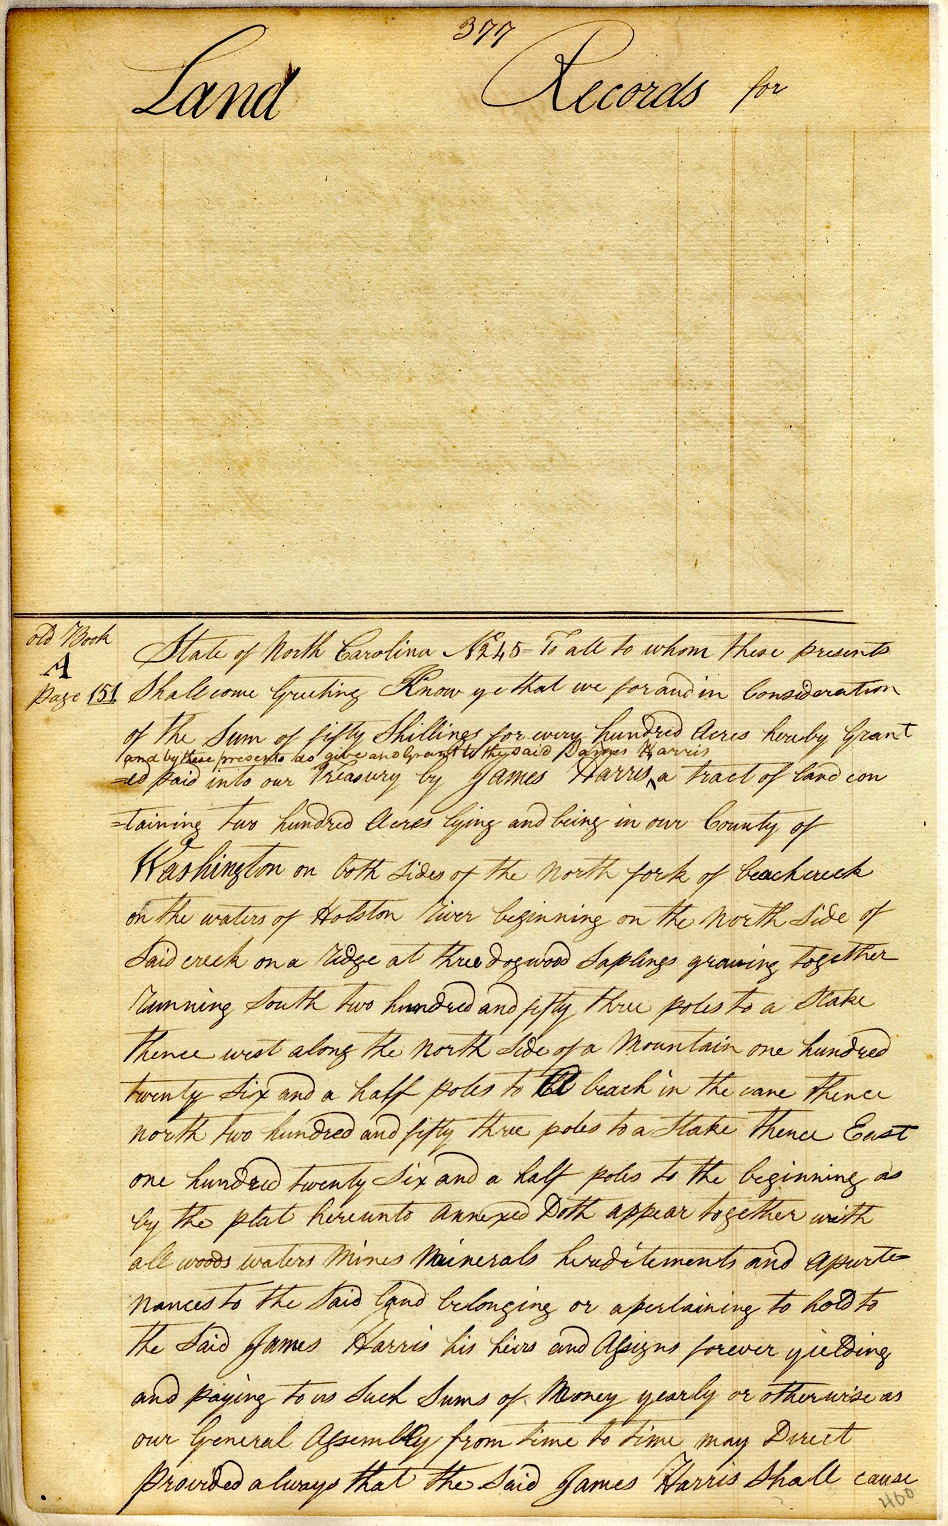 377
Land Records for
old Book
A
page 151
State of North Carolina No 245 To all to whom these presents
Shall come Greeting Know ye that we for and in Consideration
of the Sum of fifty Shillings for every hundred Acres hereby Grant
and by these presents do give and Grant to the said James Harris
=ed paid into our Treasury by James Harris ^ a tract of land con
=taining two hundred Acres lying and being in our County of
Washington on both sides of the North fork of beach creek
on the waters of Holston River beginning on the North Side of
Said creek on a ridge at three dogwood Saplings growing together
running South two hundred and fifty three poles to a Stake
thence west along the North Side of a Mountain one hundred
twenty Six and a half poles to a beach in the cane thence
north two hundred and fifty three poles to a Stake thence East
one hundred twenty Six and a half poles to the beginning as
by the plat hereunto annexed Doth appear together with
all woods waters mines minerals hereditements and apurte
nances to the Said land belonging or apertaining to hold to
the Said James Harris his heirs and Assigns forever yielding
and paying to us Such Sums of Money yearly or otherwise as
our General Assembly from time to time may Direct
provided always that the Said James Harris Shall cause
460